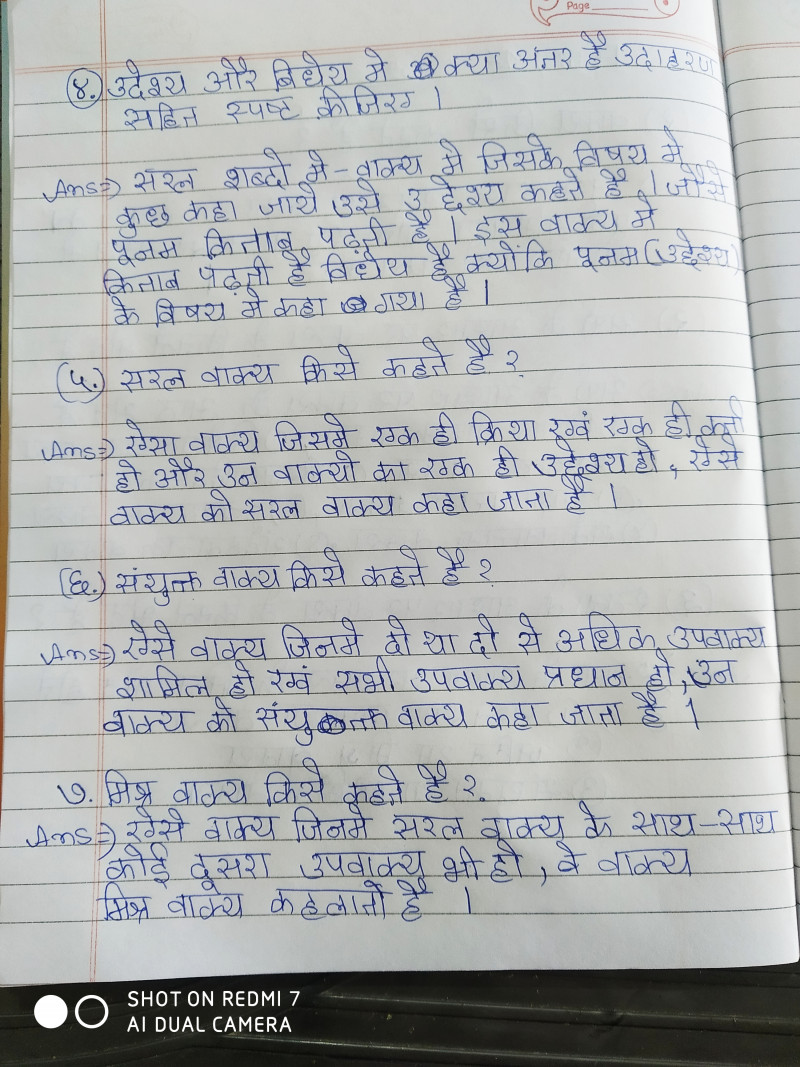 Page
४. उदेश्य और विधेय मे क्या अंतर है उदाहरण
सहित स्पष्ट कीजिए ।
Ans⇒ सरल शब्दो मे - वाक्य मे जिसके विषय मे
कुछ कहा जाये उसे उद्देश्य कहते है । जैसे
पूनम किताब पढ़ती है । इस वाक्य मे
किताब पढ़ती है विधेय है क्योंकि पूनम (उद्देश्य)
के विषय मे कहा गया है ।
(५.) सरल वाक्य किसे कहते है ?
Ans⇒ ऐसा वाक्य जिसमे एक ही क्रिया एवं एक ही कर्ता
हो और उन वाक्यो का एक ही उद्देश्य हो, ऐसे
वाक्य को सरल वाक्य कहा जाता है ।
(६.) संयुक्त वाक्य किसे कहते है ?
Ans⇒ ऐसे वाक्य जिनमे दो या दो से अधिक उपवाक्य
शामिल हो एवं सभी उपवाक्य प्रधान हो, उन
वाक्य को संयुक्त वाक्य कहा जाता है ।
७. मिश्र वाक्य किसे कहते है ?
Ans⇒ ऐसे वाक्य जिनमे सरल वाक्य के साथ-साथ
कोई दूसरा उपवाक्य भी हो, वे वाक्य
मिश्र वाक्य कहलाते है ।
SHOT ON REDMI 7
AI DUAL CAMERA